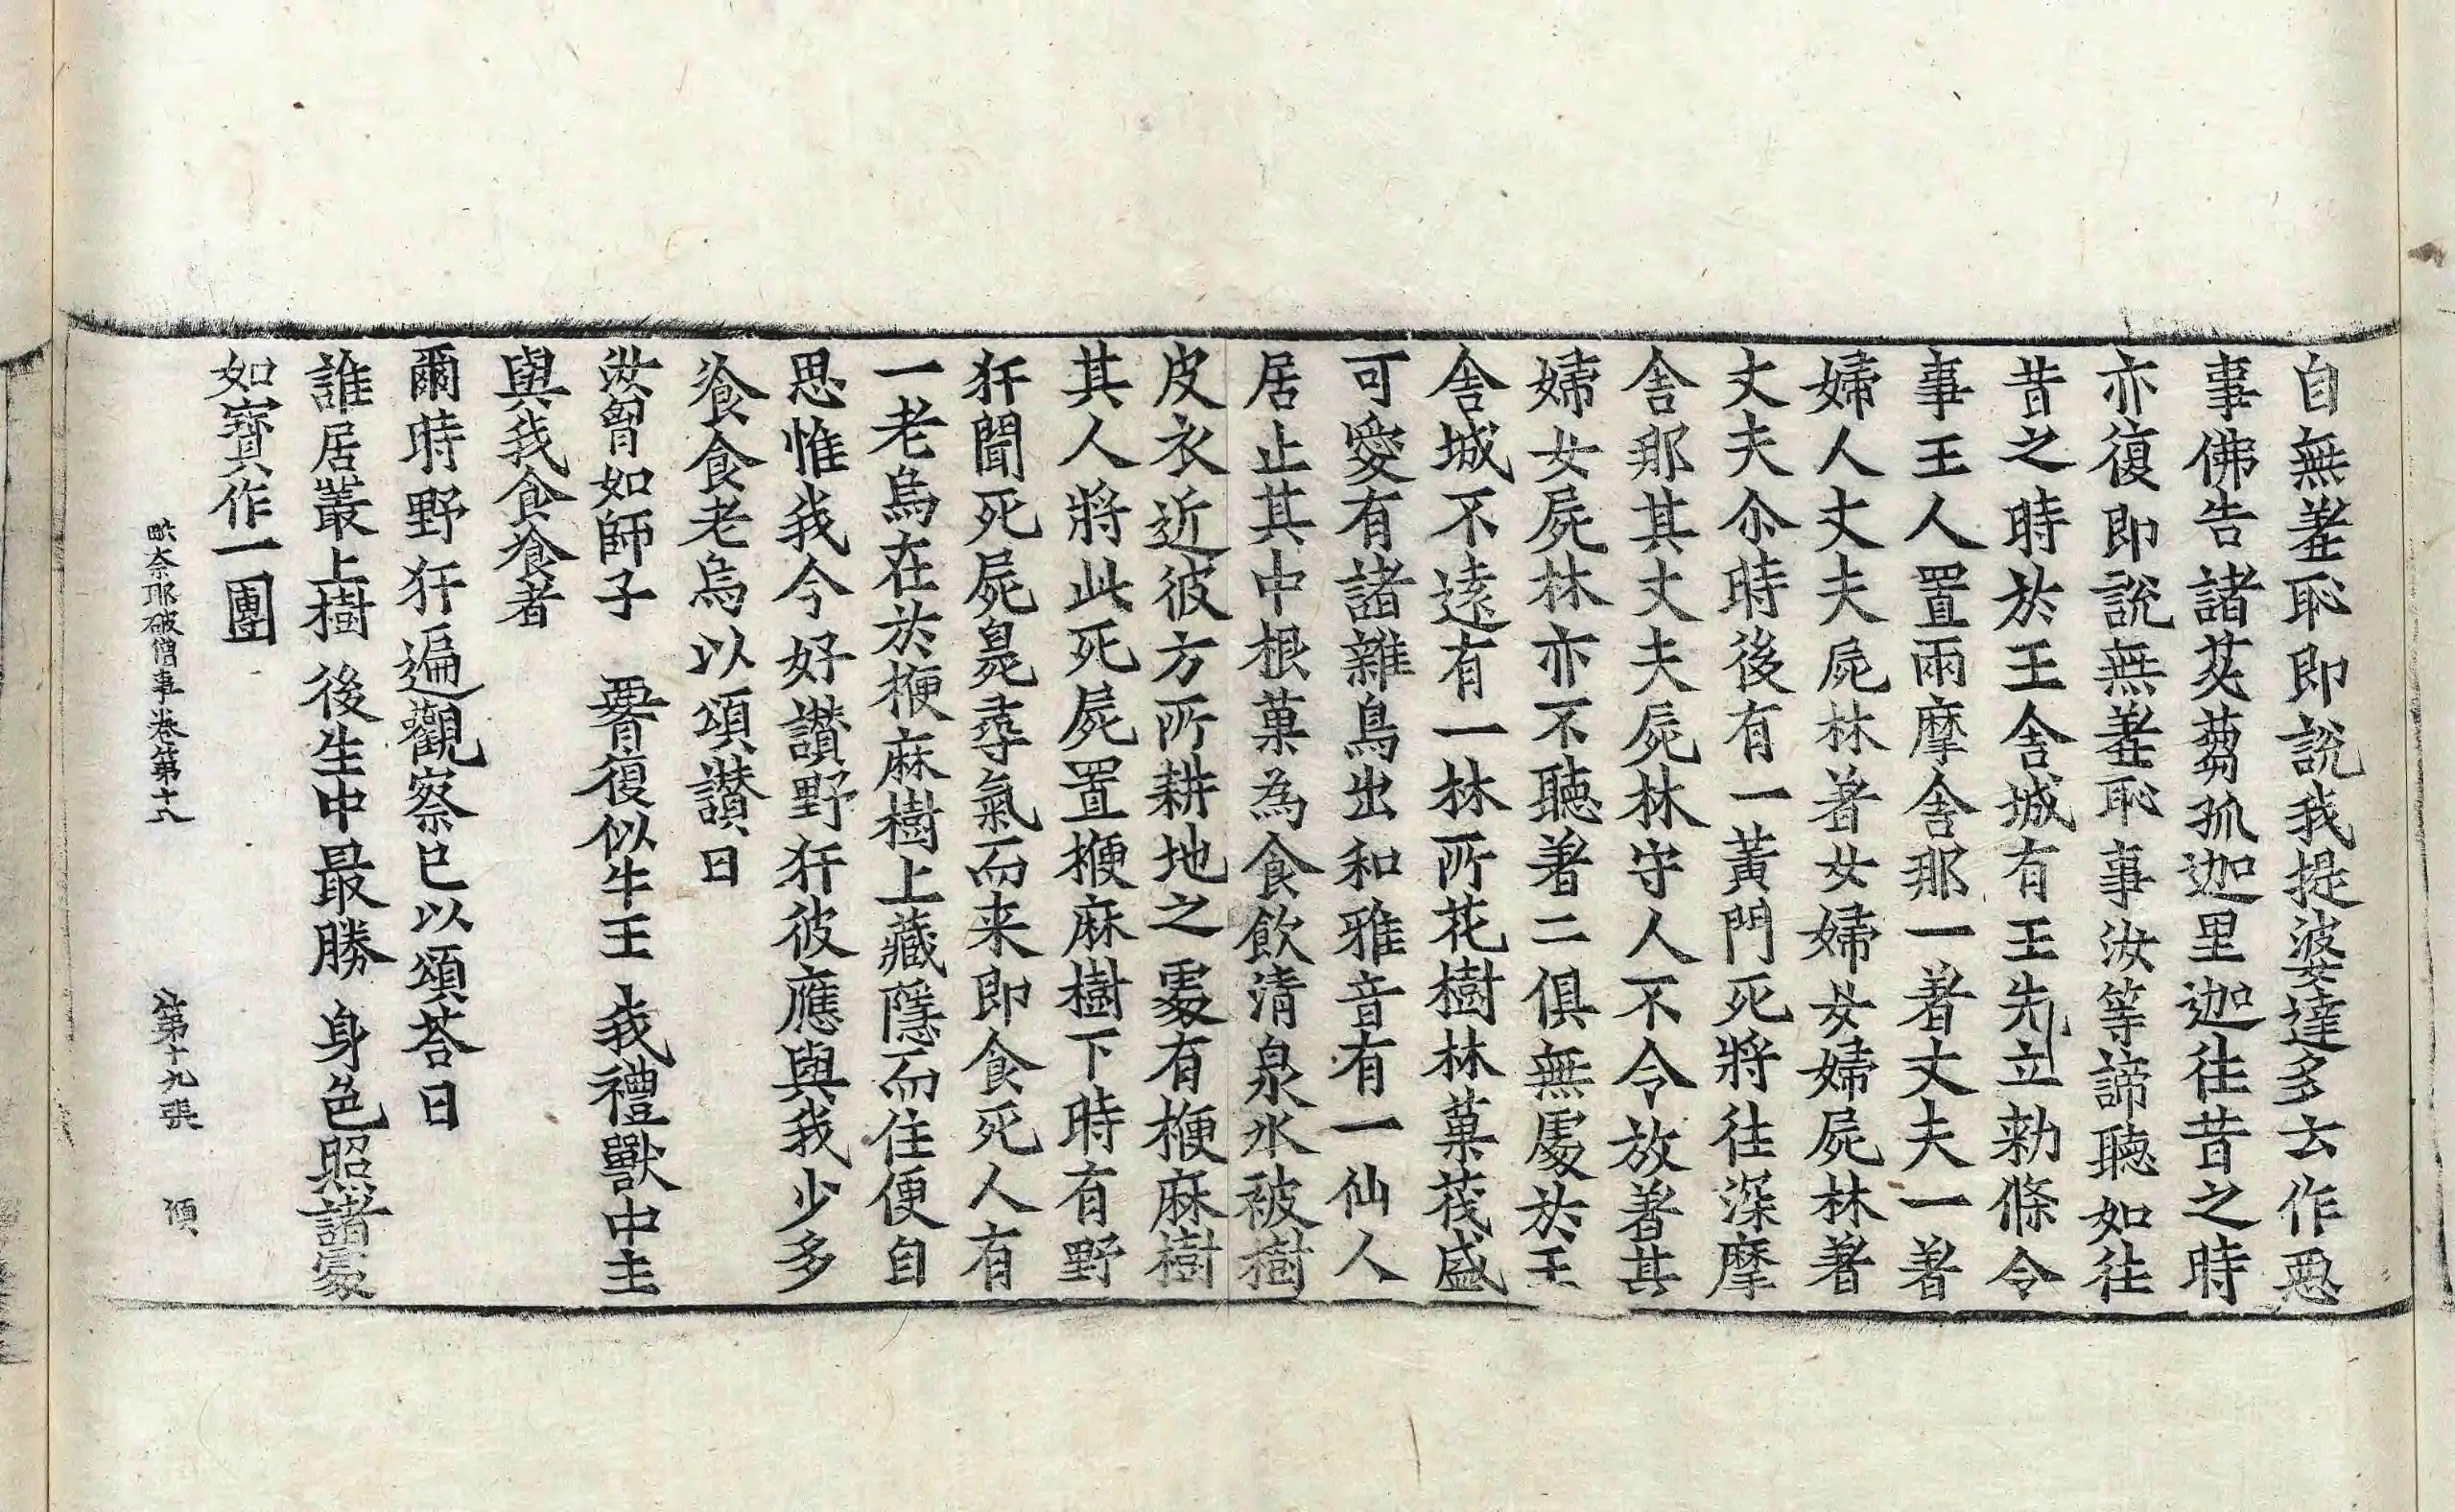 自無羞恥即說我提婆達多去作惡
事佛告諸苾蒭孤迦里迦往昔之時
亦復即說無羞恥事汝等諦聽如往
昔之時於王舍城有王先立勑條令
事王人置兩摩舍那一著丈夫一著
婦人丈夫屍林著女婦女婦屍林著
丈夫尒時後有一黃門死將往深摩
舍那其丈夫屍林守人不令放著其
婦女屍林亦不聽著二俱無處於王
舍城不遠有一林所花樹林菓茂盛
可愛有諸雜鳥出和雅音有一仙人
居止其中根菓為食飲清泉水被樹
皮衣近彼方所耕地之處有楩麻樹
其人將此死屍置楩麻樹下時有野
犴聞死屍臰尋氣而来即食死人有
一老烏在於楩麻樹上藏隱而住便自
思惟我今好讚野犴彼應與我少多
飡食老烏以頌讚曰
汝胷如師子 署復似牛王 我禮獸中主
與我食飡者
爾時野犴遍觀察已以頌荅曰
誰居叢上樹 後生中最勝 身色照諸處
如寶作一團
毗奈耶破僧事卷第十八 第十九張 須